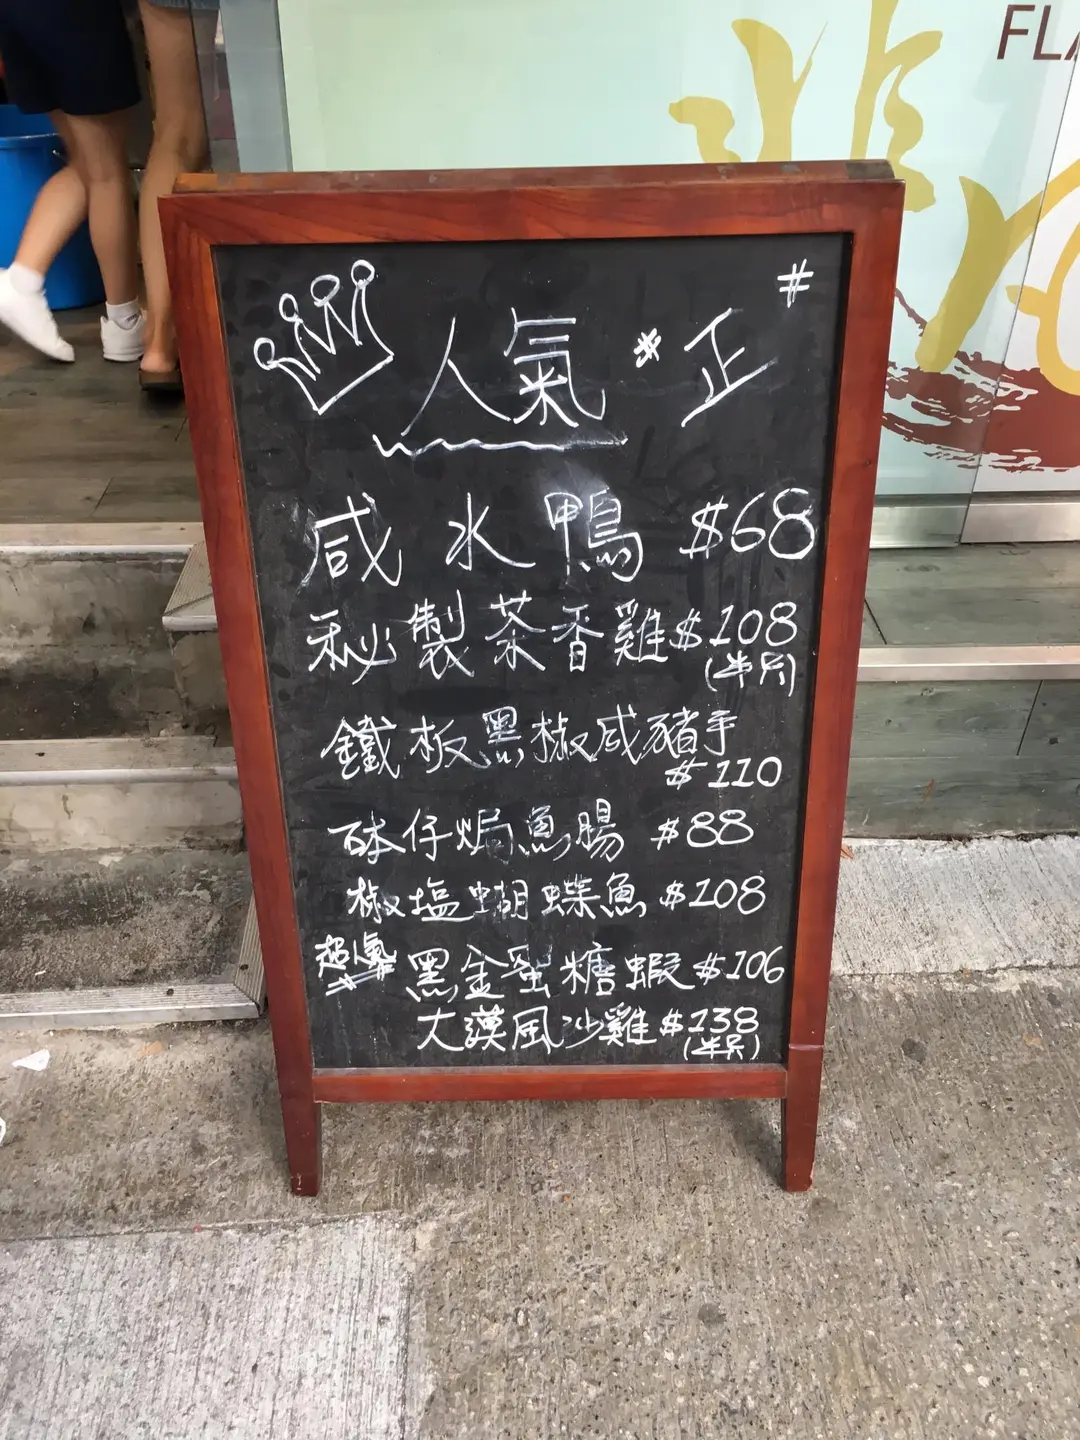 FLA
#
人氣 * 正
咸水鴨 $68
秘製茶香雞 $108
(半只)
鐵板黑椒咸豬手
$110
砵仔焗魚腸 $88
椒塩蝴蝶魚 $108
超人氣 黑金蜜糖蝦 $106
大漠風沙雞 $138
(半只)